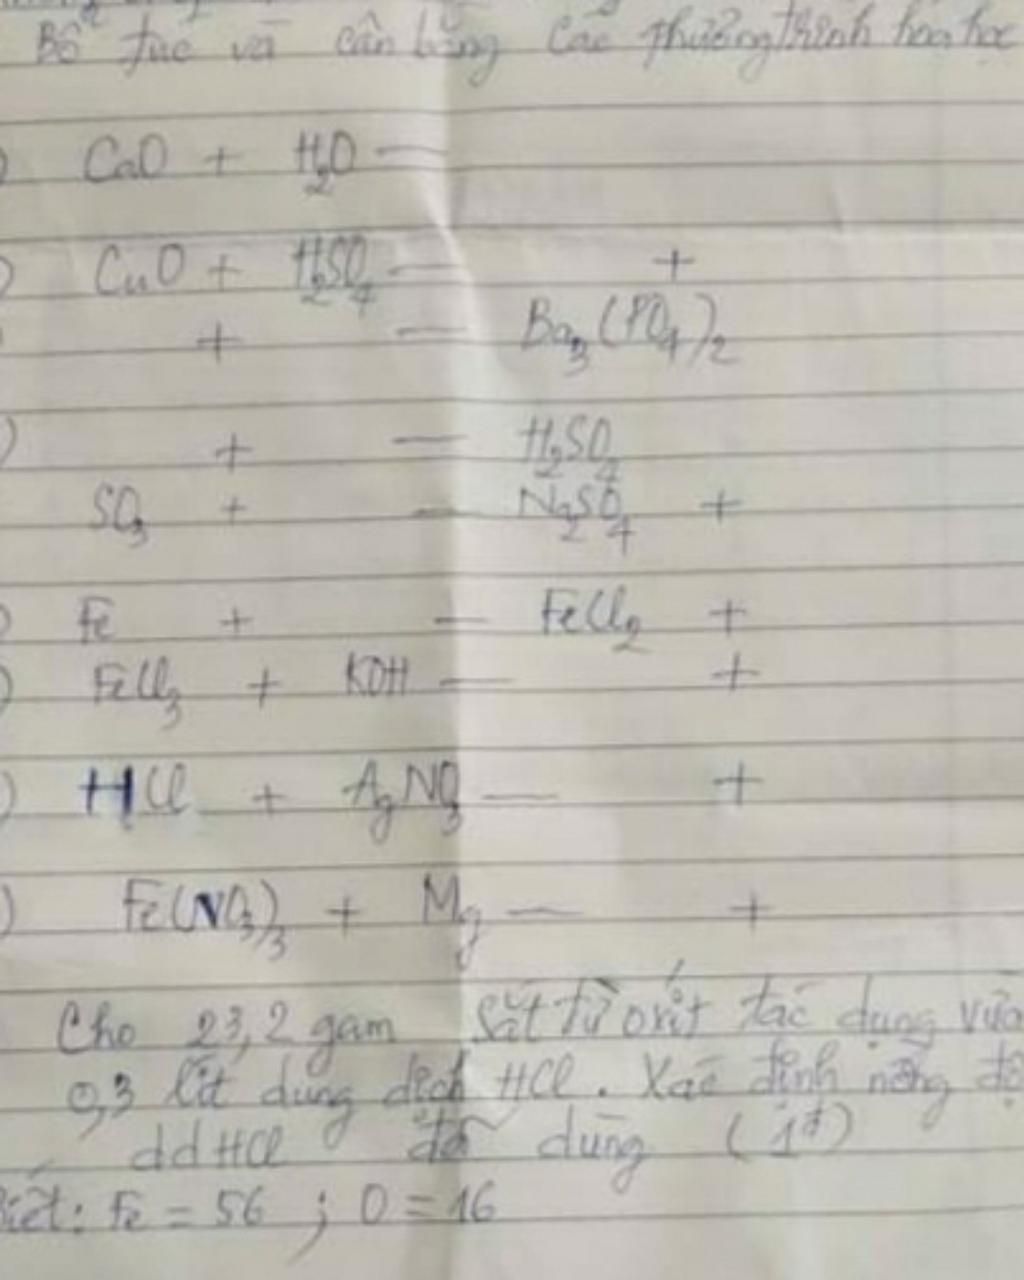 Bổ túc và cân bằng các phương trình hóa học
CaO + H₂O —
CuO + H₂SO₄ — +
+ — Ba₃(PO₄)₂
+ — H₂SO₄
SO₃ + — Na₂SO₄ +
Fe + — FeCl₂ +
FeCl₃ + KOH — +
HCl + AgNO₃ — +
Fe(NO₃)₃ + Mg — +
Cho 23,2 gam sắt từ oxit tác dụng vừa
0,3 lít dung dịch HCl. Xác định nồng độ
ddHCl đã dùng (1đ)
Biết: Fe = 56 ; O = 16